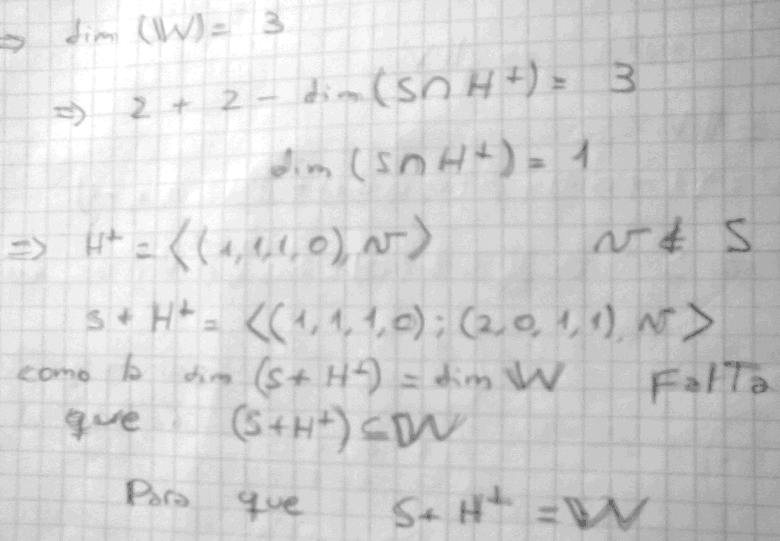 ⇒ dim (W) = 3
⇒ 2 + 2 - dim (S∩H⊥) = 3
dim (S∩H⊥) = 1
⇒ H⊥ = ⟨(1,1,1,0), v⟩ v ∉ S
S + H⊥ = ⟨(1,1,1,0); (2,0,1,1), v⟩
como la dim (S + H⊥) = dim W Falta
que (S+H⊥) ⊆ W
Para que S + H⊥ = W